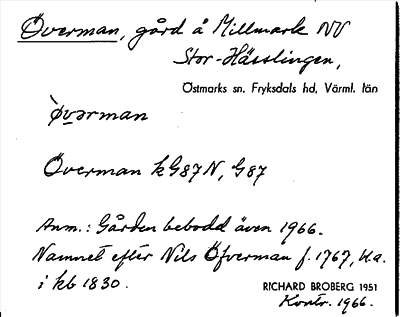 Överman, gård å Millmark NV
Stor-Hässlingen,
Östmarks sn. Fryksdals hd, Värml. län
`øv̲ərman
Överman kG87N, G87
Anm.: Gården bebodd även 1966.
Namnet efter Nils Öfverman f. 1767, ua.
i kb 1830.
RICHARD BROBERG 1951
Kontr. 1966.